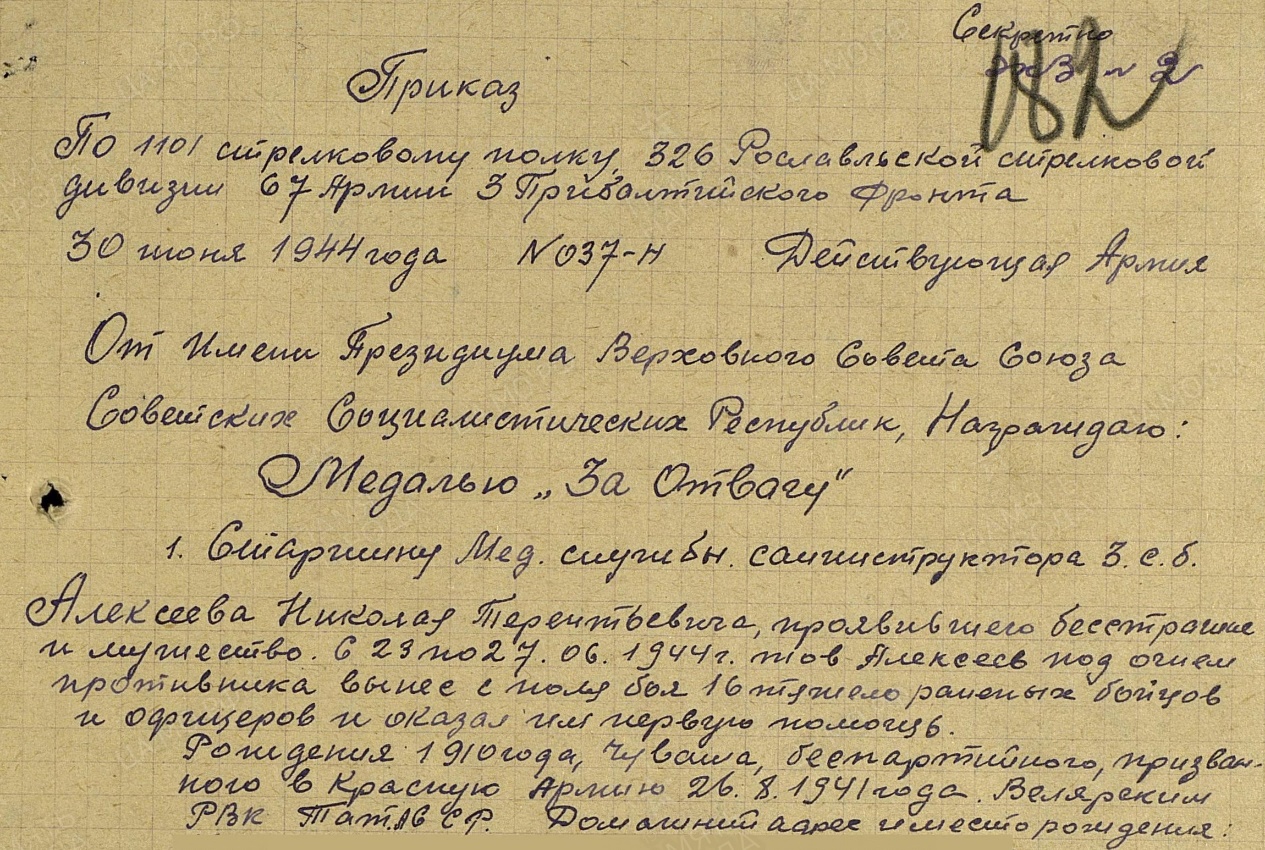 Секретно
экз № 2
182
Приказ
По 1101 стрелковому полку, 326 Рославльской стрелковой
дивизии 67 Армии 3 Прибалтийского Фронта
30 июня 1944 года N 037-Н Действующая Армия
От имени Президиума Верховного Совета Союза
Советских Социалистических Республик, Награждаю:
Медалью „За Отвагу"
1. Старшину Мед. службы. санинструктора 3. с. б.
Алексеева Николая Терентьевича, проявившего бесстрашие
и мужество. С 23 по 27. 06. 1944 г. тов Алексеев под огнем
противника вынес с поля боя 16 тяжело раненых бойцов
и офицеров и оказал им первую помощь.
Рождения 1910 года, Чуваша, беспартийного, призван-
ного в Красную Армию 26. 8. 1941 года. Велярским
РВК Тат.АССР. Домашний адрес и место рождения: